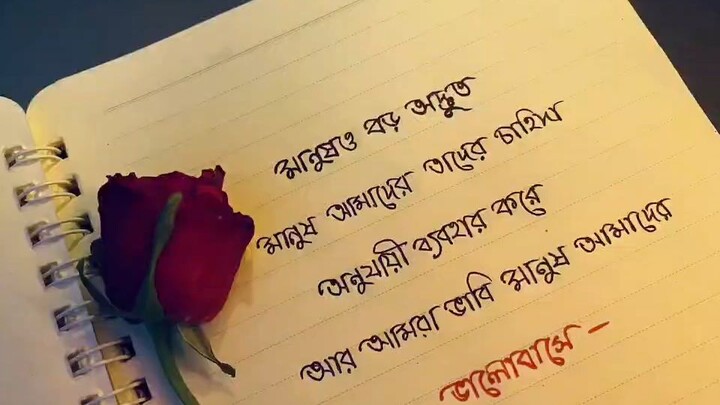 মানুষও বড় অদ্ভুত
মানুষ আমাদের তাদের চাহিদা
অনুযায়ী ব্যবহার করে
আর আমরা ভাবি মানুষ আমাদের
ভালোবাসে –